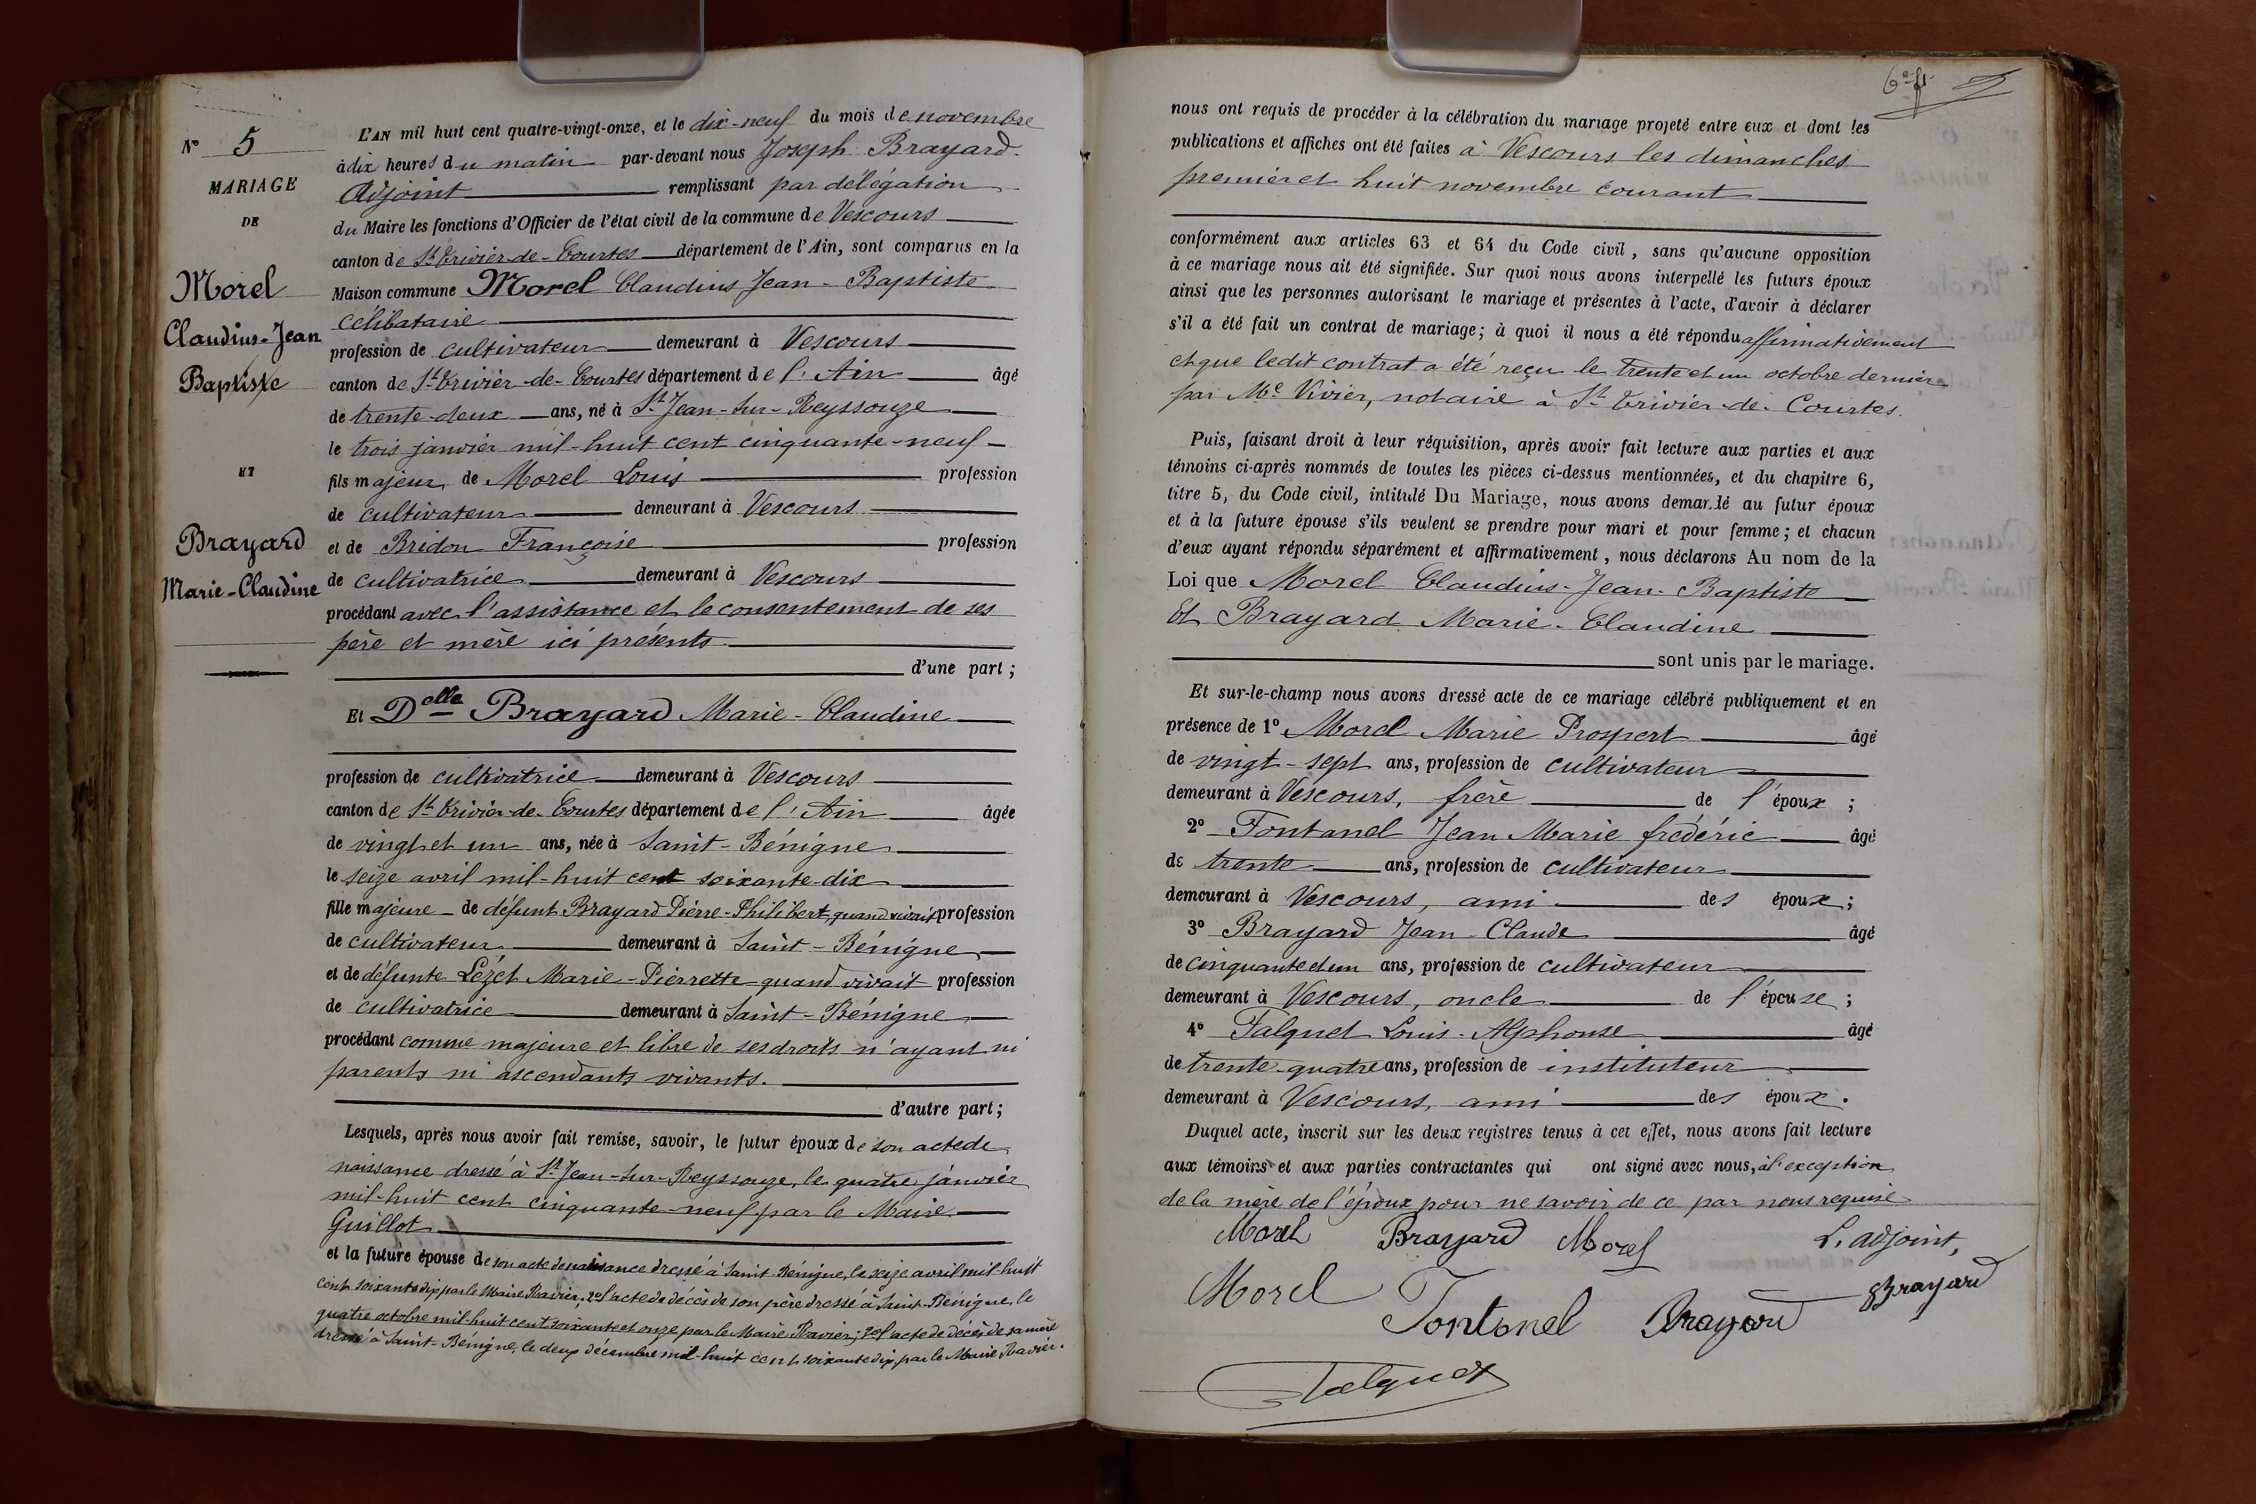 N° 5
MARIAGE
DE
Morel
Claudius-Jean
Baptiste
ET
Brayard
Marie-Claudine
L'AN mil huit cent quatre-vingt-onze, et le dix-neuf du mois de novembre
à dix heures du matin par-devant nous Joseph Brayard
Adjoint remplissant par délégation
du Maire les fonctions d'Officier de l'état civil de la commune de Vescours
canton de St Trivier-de-Courtes département de l'Ain, sont comparus en la
Maison commune Morel Claudius Jean-Baptiste
célibataire
profession de cultivateur demeurant à Vescours
canton de St-Trivier-de-Courtes département de l'Ain âgé
de trente-deux ans, né à St-Jean-sur-Reyssouze
le trois janvier mil-huit cent cinquante-neuf
fils majeur de Morel Louis profession
de cultivateur demeurant à Vescours
et de Bredon Françoise profession
de cultivatrice demeurant à Vescours
procédant avec l'assistance et le consentement de ses
père et mère ici présents
d'une part ;
Et Delle Brayard Marie-Claudine
profession de cultivatrice demeurant à Vescours
canton de St-Trivier-de-Courtes département de l'Ain âgée
de vingt et un ans, née à Saint-Bénigne
le seize avril mil-huit cent soixante-dix
fille majeure de défunt Brayard Pierre-Philibert, quand vivait profession
de cultivateur demeurant à Saint-Bénigne
et de défunte Lézet Marie-Pierrette quand vivait profession
de cultivatrice demeurant à Saint-Bénigne
procédant comme majeure et libre de ses droits n'ayant ni
parents ni ascendants vivants.
d'autre part ;
Lesquels, après nous avoir fait remise, savoir, le futur époux de son acte de
naissance dressé à St-Jean-sur-Reyssouze, le quatre janvier
mil-huit cent cinquante-neuf par le Maire
Guillot
et la future épouse de son acte de naissance dressé à Saint-Bénigne, le seize avril mil-huit
cent soixante dix par le Maire Ravier; 2° l'acte de décès de son père dressé à Saint-Bénigne, le
quatre octobre mil-huit cent soixante et onze par le Maire Ravier; 3° l'acte de décès de sa mère
dressé à Saint-Bénigne, le deux décembre mil-huit cent soixante dix, par le Maire Ravier.
nous ont requis de procéder à la célébration du mariage projeté entre eux et dont les
publications et affiches ont été faites à Vescours les dimanches
premier et huit novembre courant
conformément aux articles 63 et 64 du Code civil, sans qu'aucune opposition
à ce mariage nous ait été signifiée. Sur quoi nous avons interpellé les futurs époux
ainsi que les personnes autorisant le mariage et présentes à l'acte, d'avoir à déclarer
s'il a été fait un contrat de mariage; à quoi il nous a été répondu affirmativement
et que ledit contrat a été reçu le trente et un octobre dernier
par Me Vivier, notaire à St-Trivier-de-Courtes.
Puis, faisant droit à leur réquisition, après avoir fait lecture aux parties et aux
témoins ci-après nommés de toutes les pièces ci-dessus mentionnées, et du chapitre 6,
titre 5, du Code civil, intitulé Du Mariage, nous avons demandé au futur époux
et à la future épouse s'ils veulent se prendre pour mari et pour femme; et chacun
d'eux ayant répondu séparément et affirmativement, nous déclarons Au nom de la
Loi que Morel Claudius-Jean-Baptiste
Et Brayard Marie-Claudine
sont unis par le mariage.
Et sur-le-champ nous avons dressé acte de ce mariage célébré publiquement et en
présence de 1° Morel Marie Prospert âgé
de vingt-sept ans, profession de cultivateur
demeurant à Vescours, frère de l'époux ;
2° Fontanel Jean Marie frédéric âgé
de trente ans, profession de cultivateur
demeurant à Vescours, ami des époux ;
3° Brayard Jean-Claude âgé
de cinquante et un ans, profession de cultivateur
demeurant à Vescours, oncle de l'épouse ;
4° Falquet Louis-Alphonse âgé
de trente-quatre ans, profession de instituteur
demeurant à Vescours, ami des époux.
Duquel acte, inscrit sur les deux registres tenus à cet effet, nous avons fait lecture
aux témoins et aux parties contractantes qui ont signé avec nous, à l'exception
de la mère de l'époux pour ne savoir de ce par nous requise
Morel Brayard Morel L'adjoint,
Morel Fontanel Brayard Brayard
Falquet